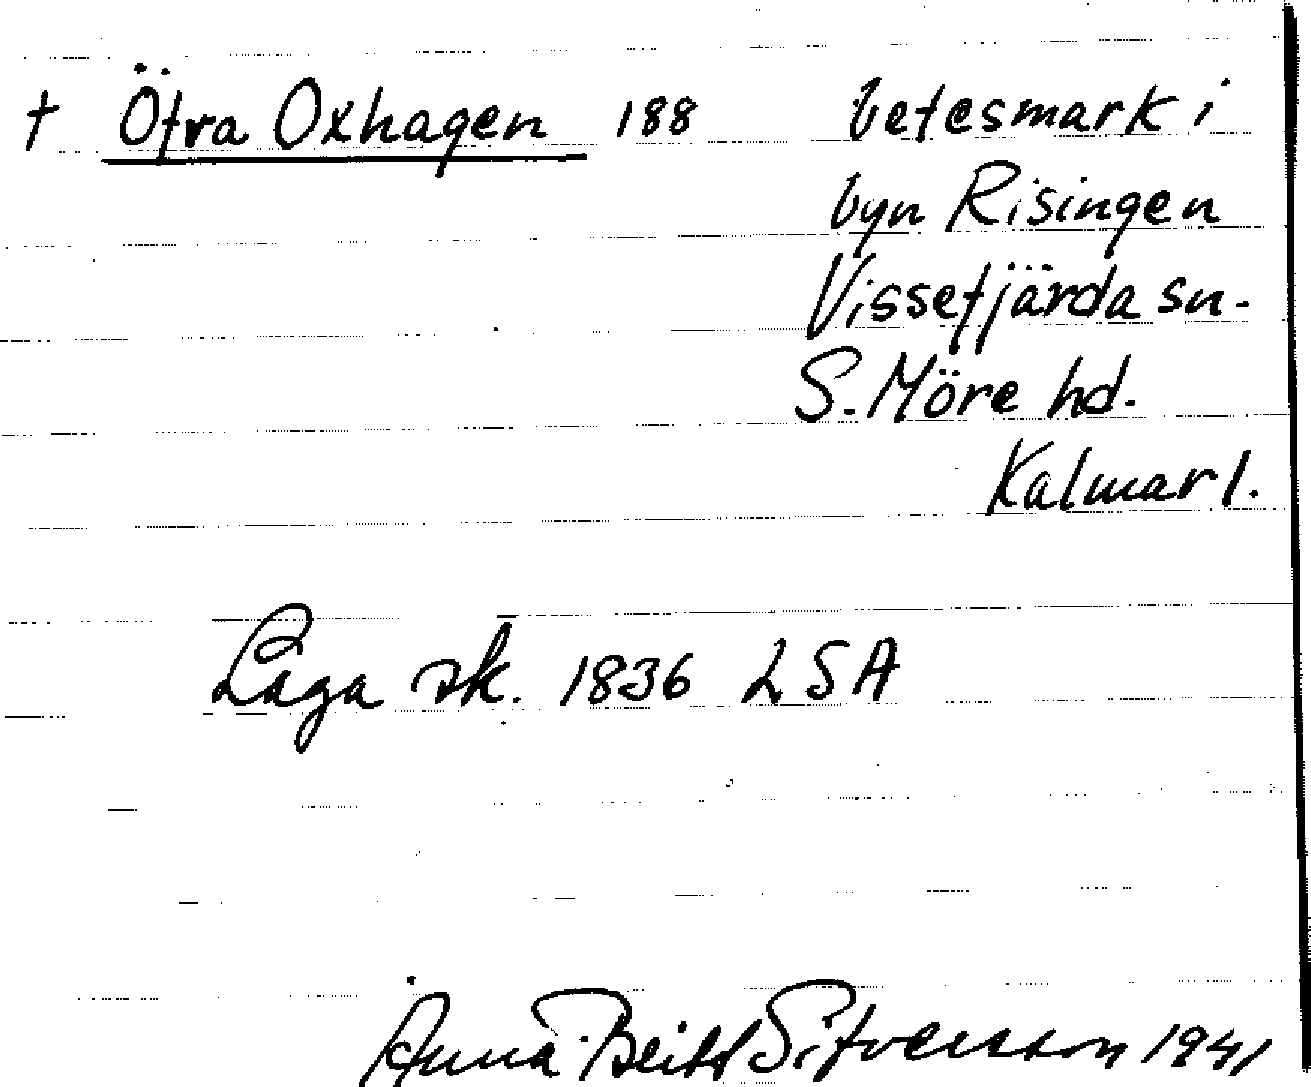 † Öfra Oxhagen 188 betesmark i
byn Risingen
Vissefjärda sn.
S. Möre hd.
Kalmar l.
Laga sk. 1836 LSA
Anna-Britt Sifversson 1941